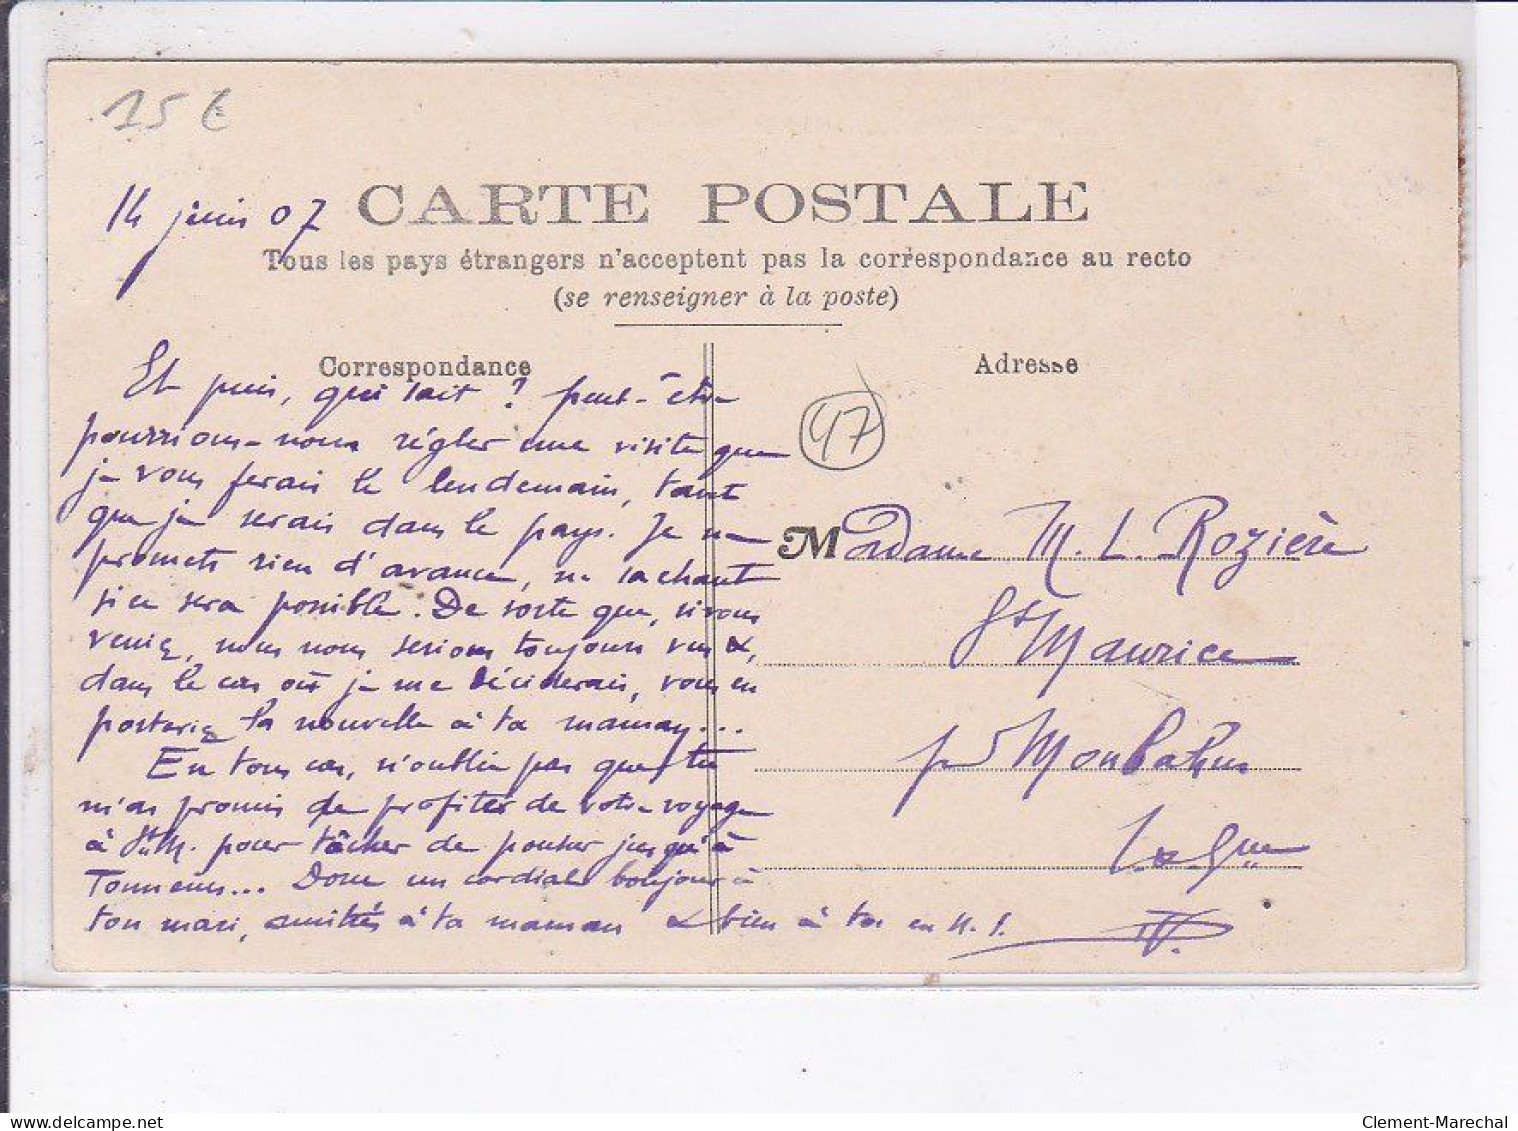 15 €
14 juin 07
CARTE POSTALE
Tous les pays étrangers n'acceptent pas la correspondance au recto
(se renseigner à la poste)
Correspondance
Et puis, qui sait ? peut-être
pourrions-nous régler une visite que
je vous ferais le lendemain, tant
que je serais dans le pays. Je ne
promets rien d'avance, ne sachant
si ce sera possible. De sorte que, si vous
veniez, nous nous serions toujours vus &,
dans le cas où je me déciderais, vous en
porteriez la nouvelle à ta maman...
En tous cas, n'oublie pas que tu
m'as promis de profiter de votre voyage
à St M. pour tâcher de pousser jusqu'à
Tonneins... Donc un cordial bonjour à
ton mari, amitiés à ta maman & bien à toi en N. S.
Adresse
47
Madame M. L. Rozière
St Maurice
par Monbahus
Clement-Marechal